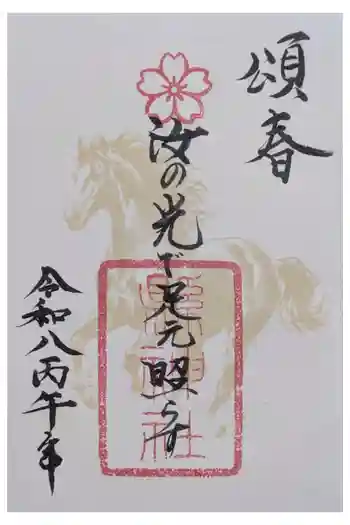 頌春
汝の光で足元照らす
令和八丙午年